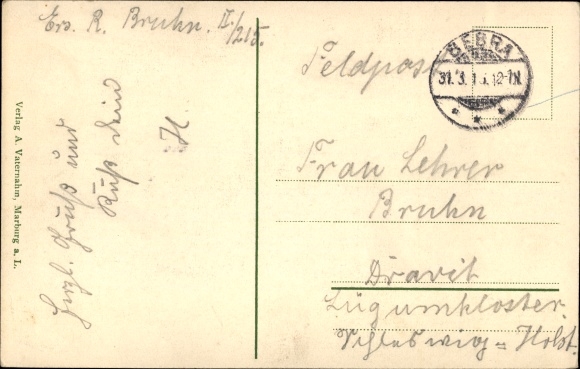 Ers. R. Bruhn. II./215.
Herzl. Gruß und
Kuß dein
H
Verlag A. Vaternahm, Marburg a. L.
Feldpost
BEBRA
31.3.15.12-1N.
Frau Lehrer
Bruhn
Dravit
Lügumkloster.
Schleswig = Holst.